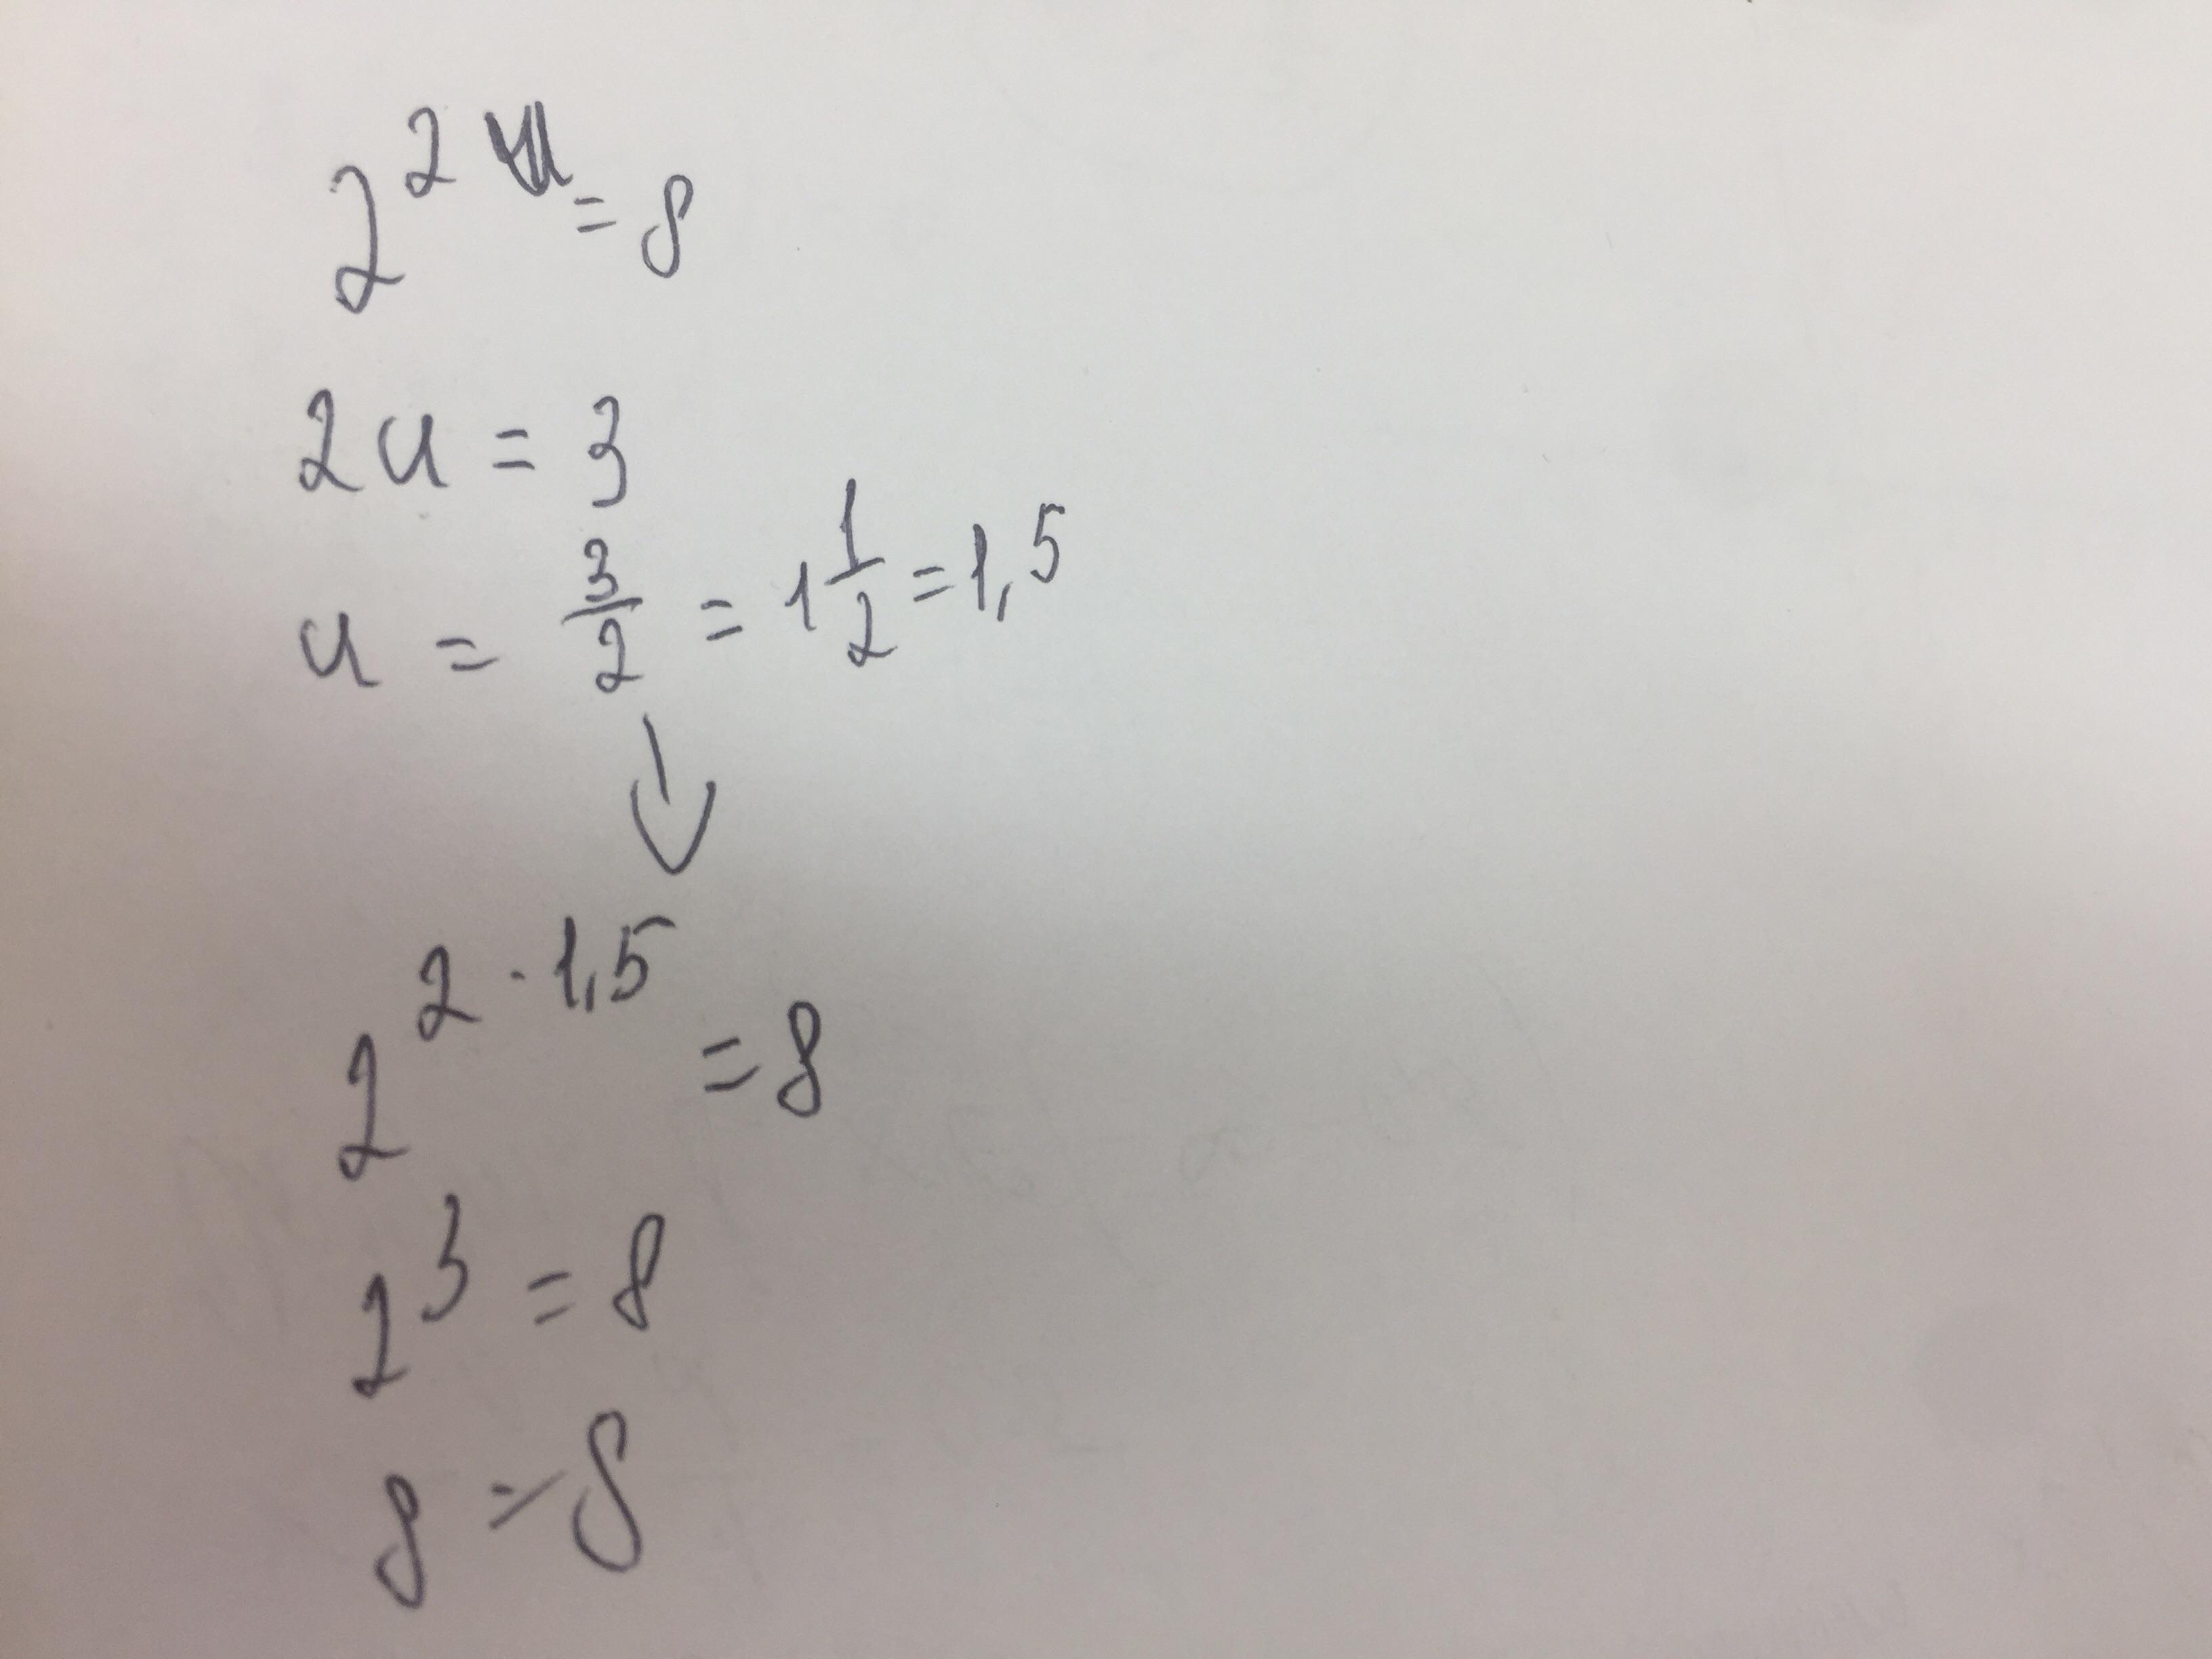 2^{2u} = 8
2u = 3
u = \frac{3}{2} = 1\frac{1}{2} = 1,5
↓
2^{2 \cdot 1,5} = 8
2^3 = 8
8 = 8